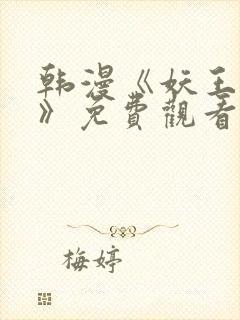 韩漫《妖王
》免費觀看
梅婷